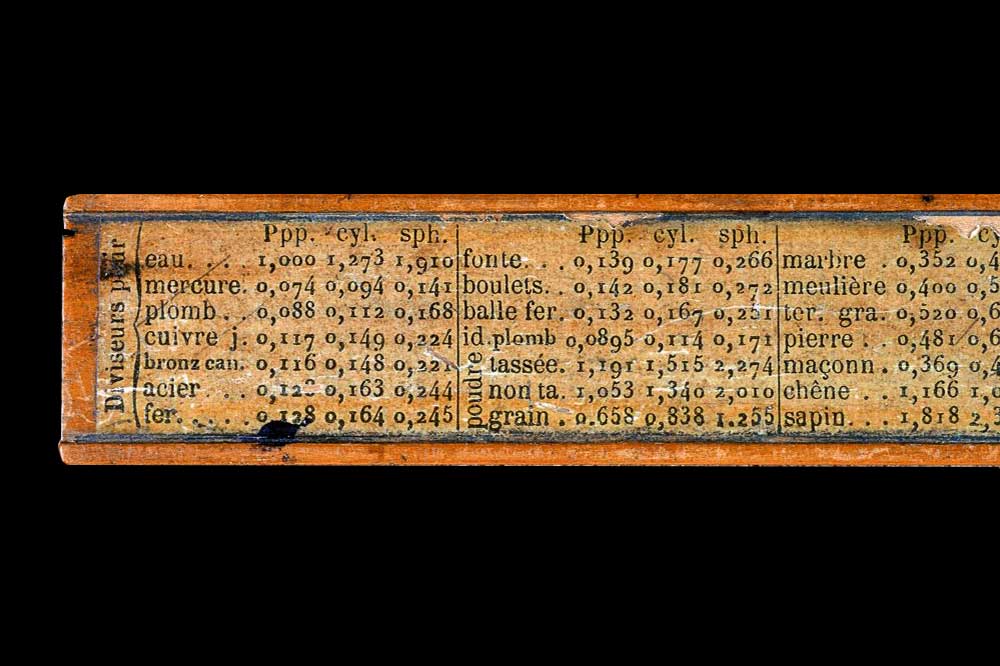 Diviseurs pour
Ppp. cyl. sph.
eau. . . 1,000 1,273 1,910
mercure. 0,074 0,094 0,141
plomb . . 0,088 0,112 0,168
cuivre j. 0,117 0,149 0,224
bronz can. 0,116 0,148 0,221
acier . . 0,163 0,244
fer. . . . 0,128 0,164 0,245
Ppp. cyl. sph.
fonte. . . 0,139 0,177 0,266
boulets. . 0,142 0,181 0,272
balle fer. 0,132 0,167 0,251
id. plomb 0,0895 0,114 0,171
poudre
tassée. 1,191 1,515 2,274
non ta. 1,053 1,340 2,010
grain . 0.658 0,838 1.255
Ppp. cy
marbre . 0,352 0,4
meulière 0,400 0,5
ter. gra. 0,520 0,6
pierre . . 0,481 0,6
maçonn . 0,369 0,4
chêne . . 1,166 1,
sapin. . . 1,818 2,